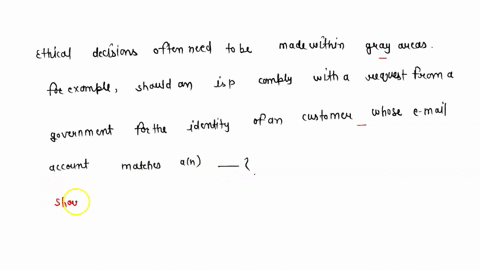 Ethical decisions often need to be made within gray areas.
for example, should an isp comply with a request from a
government for the identity of an customer whose e-mail
account matches a(n) __ ?.
shou